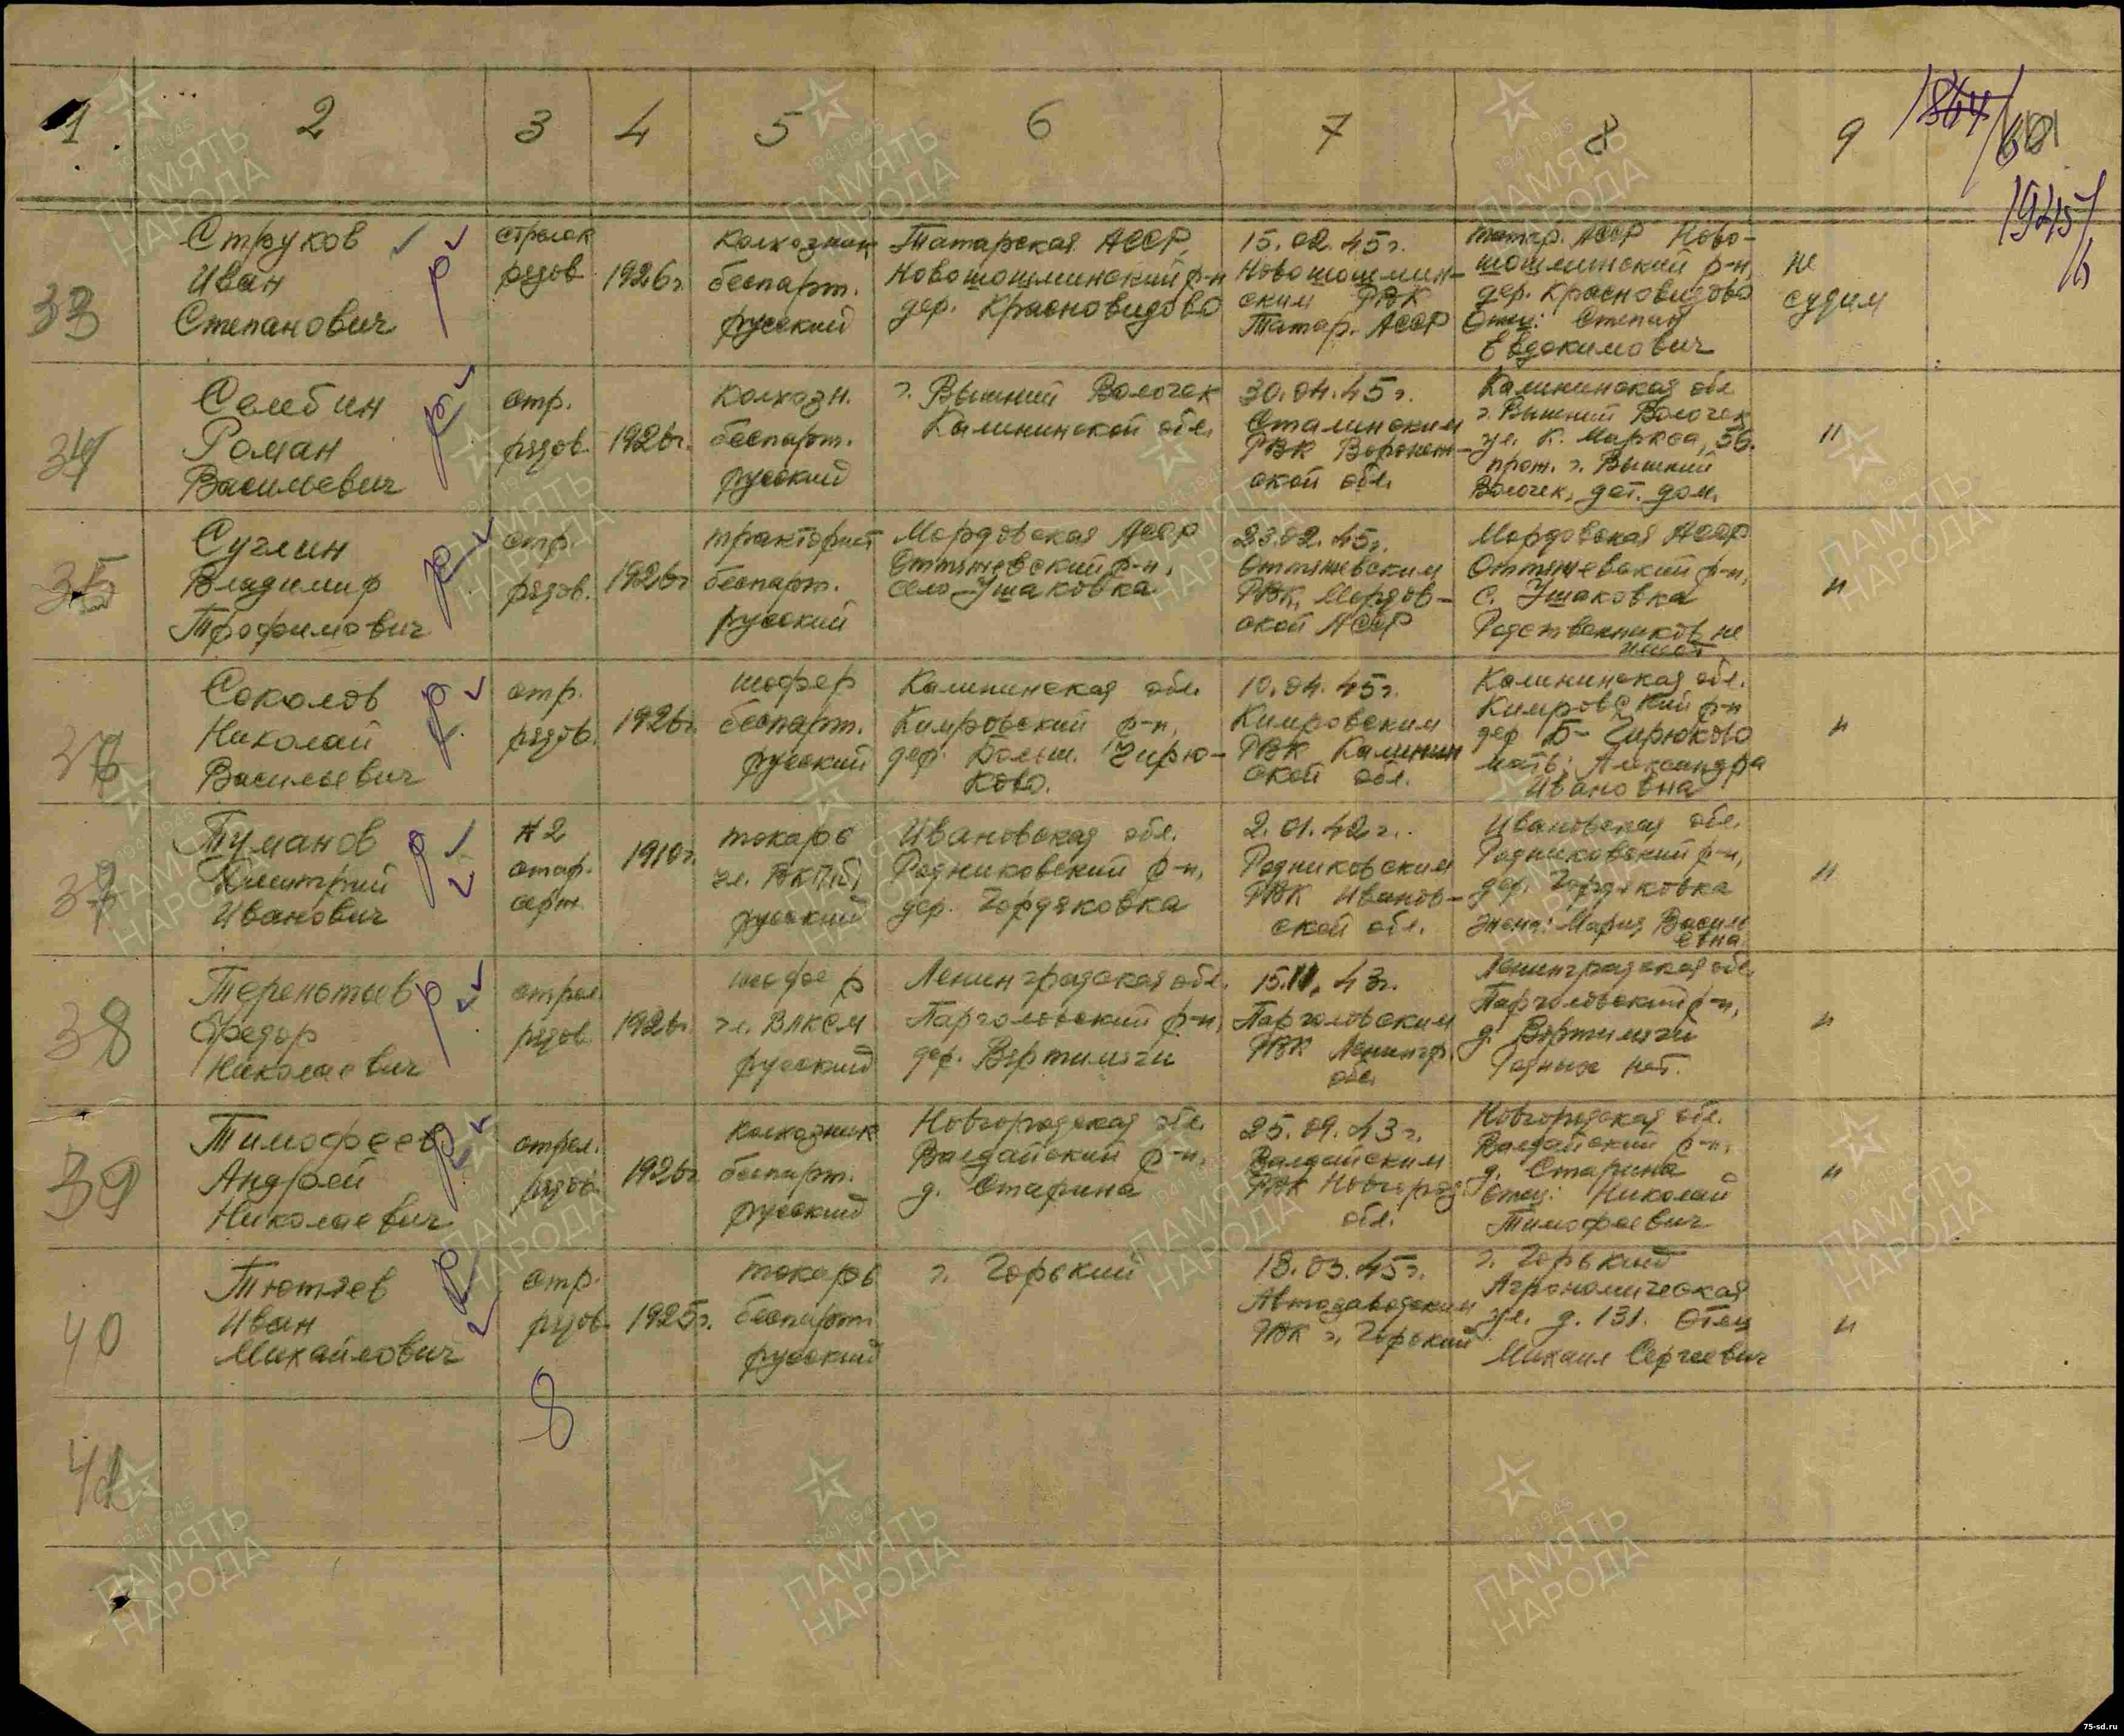 1 2 3 4 5 6 7 8 9
1945/6
33
Струков
Иван
Степанович
стрелок
рядов
1926г.
колхозник
беспарт.
русский
Татарская АССР,
Новошешминский р-н
дер. Красновидово
15.02.45г.
Новошешмин-
ским РВК
Татар. АССР
Татар. АССР Ново-
шешминский р-н,
дер. Красновидово
Отец: Степан
Евдокимович
не
судим
34
Селбин
Роман
Васильевич
стр.
рядов.
1926г.
колхозн.
беспарт.
русский
г. Вышний Волочек
Калининской обл.
30.04.45г.
Сталинским
РВК Воронеж-
ской обл.
Калининская обл
г. Вышний Волочек
ул. К. Маркса, 56.
прож. г. Вышний
Волочек, дет. дом.
"
35
Суглин
Владимир
Трофимович
стр.
рядов.
1926г
тракторист
беспарт.
русский
Мордовская АССР
Аттяшевский р-н,
село Ушаковка
23.02.45г.
Аттяшевским
РВК, Мордов-
ской АССР
Мордовская АССР
Аттяшевский р-н,
с. Ушаковка
Родственников не
имеет
"
36
Соколов
Николай
Васильевич
стр.
рядов.
1926г.
шофер
беспарт.
русский
Калининская обл.
Кимровский р-н,
дер. Больш. Чирю-
ково.
10.04.45г.
Кимровским
РВК Калинин
ской обл.
Калининская обл.
Кимровский р-н
дер Б-Чирюково
мать: Александра
Ивановна
"
37
Туманов
Дмитрий
Иванович
#2
стар.
серж.
1910г.
токарь
чл. ВКП(б)
русский
Ивановская обл.
Родниковский р-н,
дер. Гордяковка
2.01.42г.
Родниковским
РВК Иванов-
ской обл.
Ивановская обл.
Родниковский р-н,
дер. Гордяковка
жена: Мария Василь
евна
"
38
Терентьев
Федор
Николаевич
стрел.
рядов
1926г
шофер
чл. ВЛКСМ
русский
Ленинградская обл.
Парголовский р-н,
дер. Вартимяги
15.11.43г.
Парголовским
РВК Ленингр.
обл.
Ленинградская обл.
Парголовский р-н,
д. Вартимяги
Родных нет.
"
39
Тимофеев
Андрей
Николаевич
стрел.
рядов
1926г
колхозник
беспарт.
русский
Новгородская обл.
Валдайский р-н,
д. Старина
25.09.43г.
Валдайским
РВК Новгород
обл.
Новгородская обл.
Валдайский р-н,
д. Старина
Отец: Николай
Тимофеевич
"
40
Тютяев
Иван
Михайлович
стр.
рядов.
1925г.
токарь
беспарт.
русский
г. Горький
18.03.45г.
Автозаводским
РВК г. Горький
г. Горький
Агрономическая
ул. д. 131. Отец
Михаил Сергеевич
"
8
41
1941-1945
ПАМЯТЬ
НАРОДА
75-sd.ru